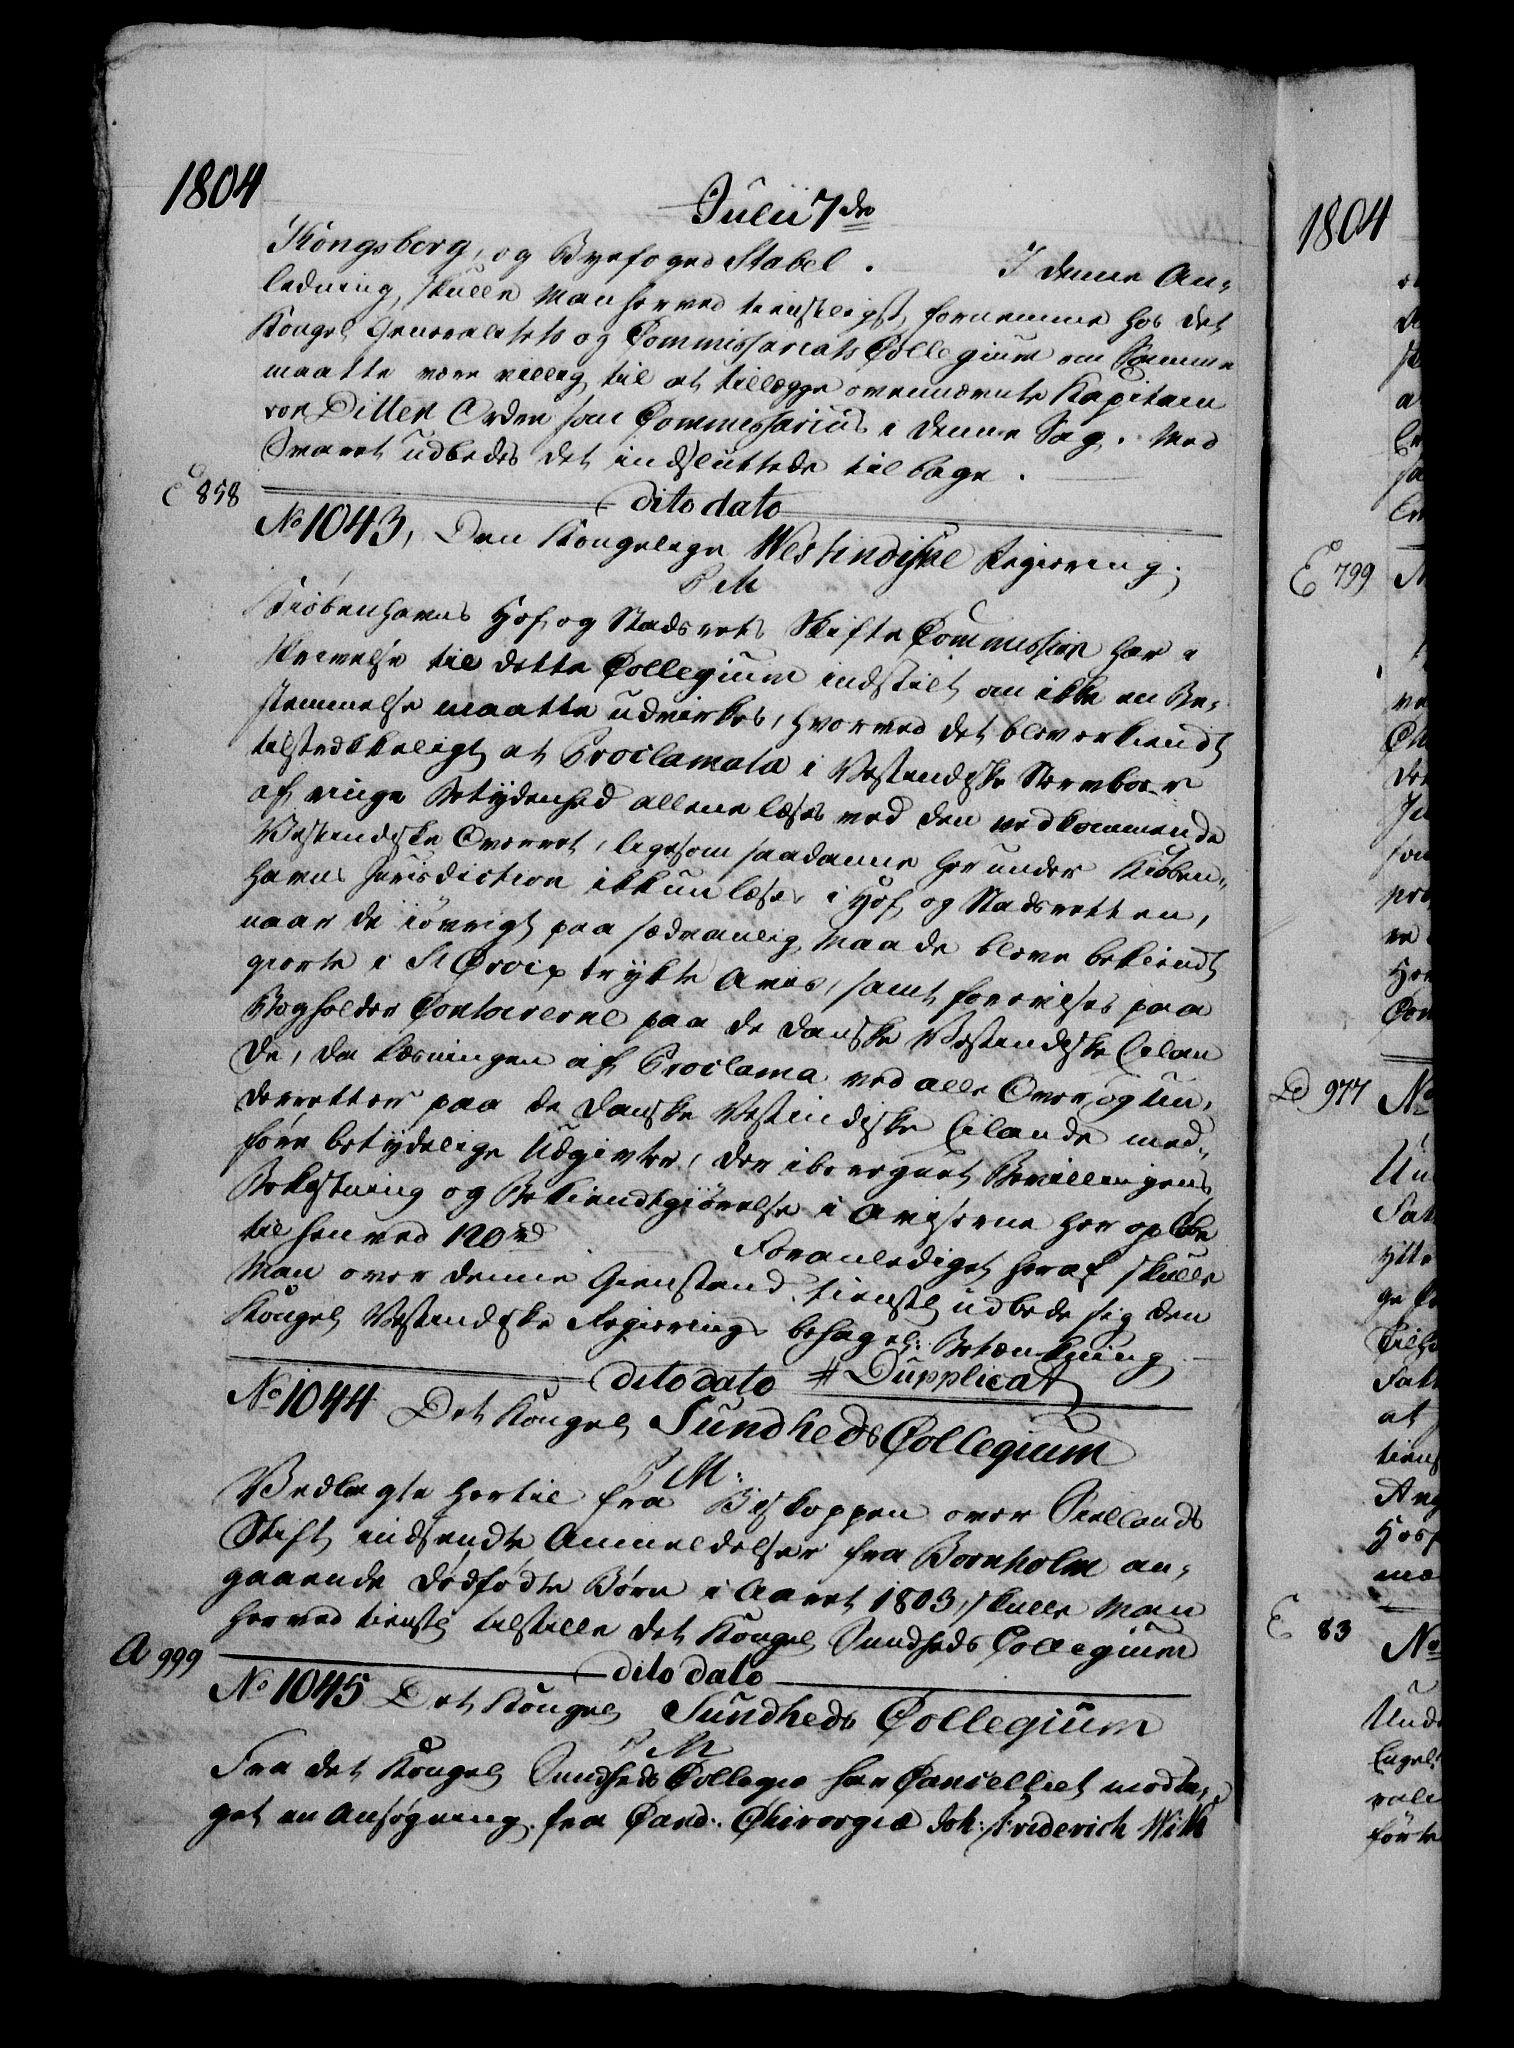 1804
Julii 7de
Kongsberg, og Byefoged Stabel. I denne An-
ledning skulle Man herved tienstligst fornemme hos det
Kongel Generalitets og Commissariats Collegium om Samme
maatte være villig til at tillægge ovenmeldte Kapitain
von Ditten Orden som Commissarius i denne Sag. Med
Svaret udbedes det indsluttede tilbage.
E 858
dito dato
No 1043, Den Kongelige Westindiske Regiering.
P M
Kiøbenhavns Hof og Stadsrets Skifte Commission har i
Skrivelse til dette Collegium indstilt om ikke en Be-
stemmelse maatte udvirkes, hvorved det blev erkiendt
tilstrækkeligt at Proclamata i Vestindiske Stervboer
af ringe Betydenhed allene læses ved den vedkommende
Vestindiske Overret, ligesom saadanne her under Kiøben-
havns Jurisdiction ikkun læses i Hof og Stadsretten,
naar de iøvrigt paa sædvanlig Maade blive bekiendt
giorte i St Croix trykte Avis, samt forevises paa
Bogholder Contoirerne paa de danske Vestindiske Eilan
de, da Læsningen af Proclama ved alle Over og Un-
derretter paa de danske Vestindiske Eilande med-
føre betydelige Udgivter, der iberegnet Bevillingens
Bekostning og Bekiendtgiørelse i Aviserne her opløbe
til henved 120 rd Foranlediget heraf skulle
Man over denne Gienstand tienstl udbede sig den
Kongel Vestindiske Regierings behagel: Betænkning
dito dato # Dupplicat
No 1044 Det Kongel Sundheds Collegium
P M:
Vedlagte hertil fra Biskoppen over Siellands
Stift indsendte Anmeldelser fra Bornholm an-
gaaende dødfødte Børn i Aaret 1803, skulle Man
herved tienstl tilstille det Kongel Sundheds Collegium
A 999
dito dato
No 1045 Det Kongel Sundheds Collegium
P M
Fra det Kongel Sundheds Collegie har Cancelliet modta-
get en Ansøgning fra Cand: Chirurgiæ Joh: Friderich With
1804
E 799
D 977
No
E 83
No